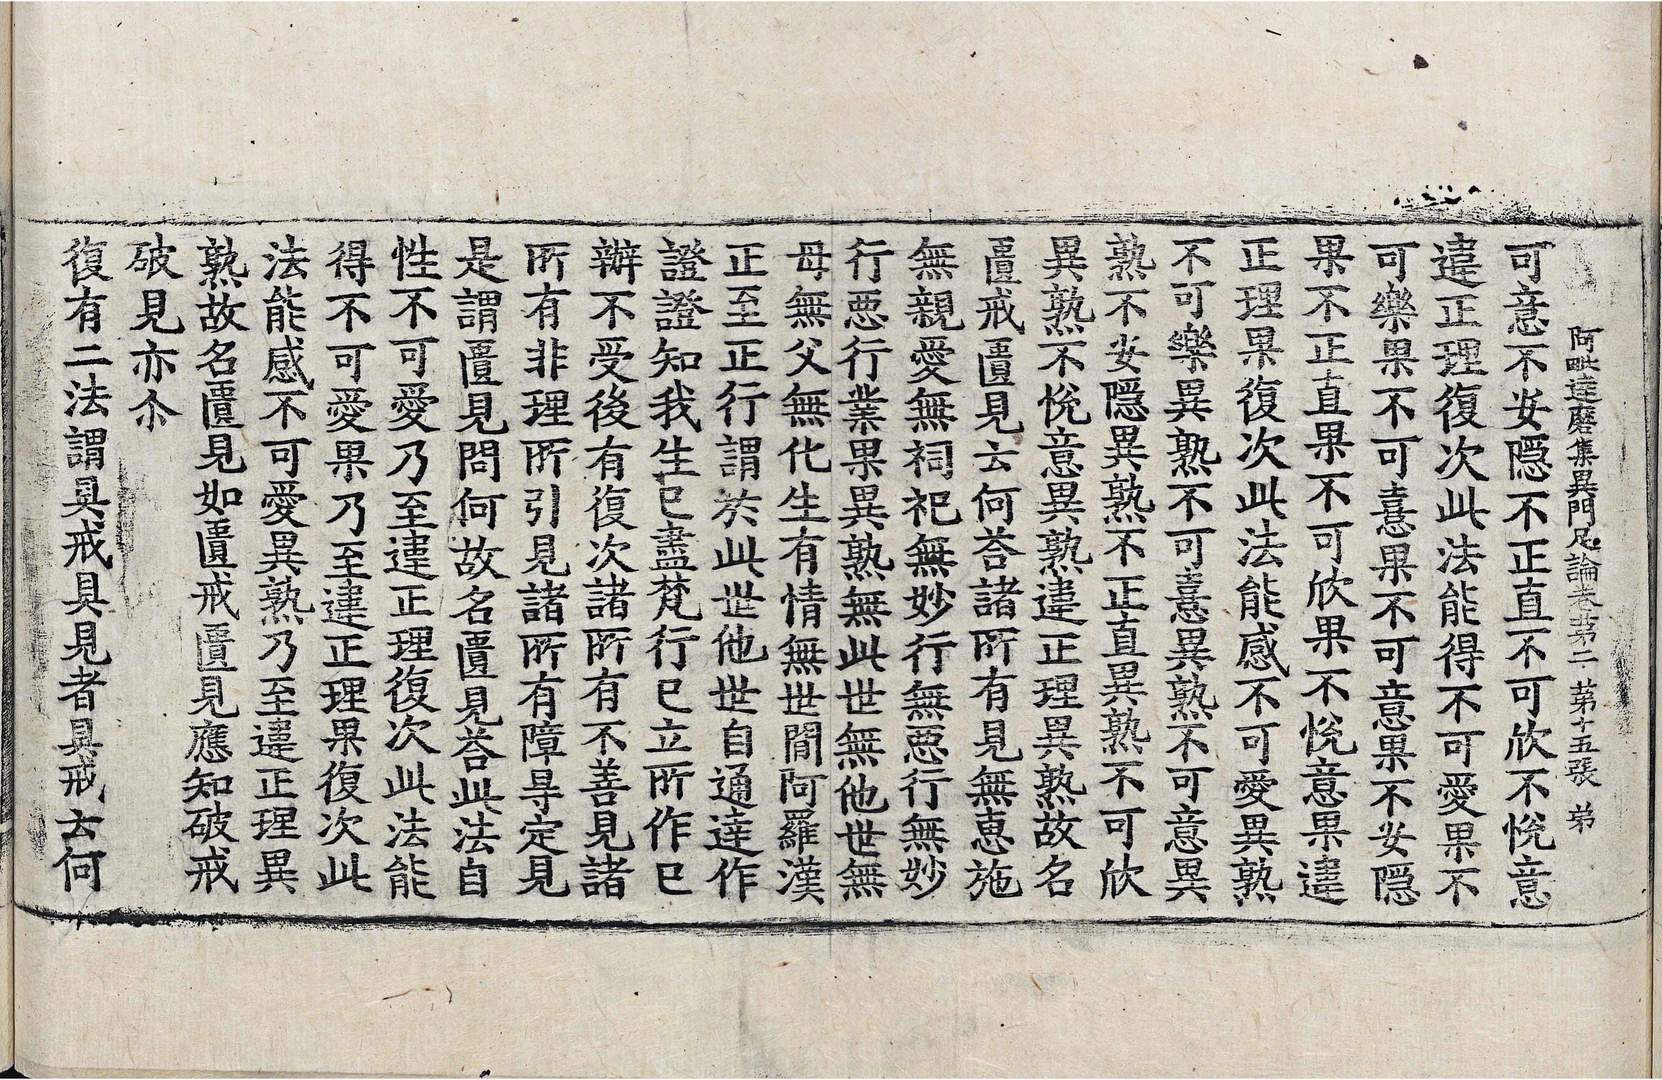 阿毗達磨集異門足論卷第二 第十五張 弟
可意不安隱不正直不可欣不悅意
違正理復次此法能得不可愛果不
可樂果不可憙果不可意果不安隱
果不正直果不可欣果不悅意果違
正理果復次此法能感不可愛異熟
不可樂異熟不可憙異熟不可意異
熟不安隱異熟不正直異熟不可欣
異熟不悅意異熟違正理異熟故名
匱戒匱見云何荅諸所有見無恵施
無親愛無祠祀無妙行無惡行無妙
行惡行業果異熟無此世無他世無
母無父無化生有情無世閒阿羅漢
正至正行謂於此世他世自通達作
證證知我生已盡梵行已立所作已
辦不受後有復次諸所有不善見諸
所有非理所引見諸所有障㝵定見
是謂匱見問何故名匱見荅此法自
性不可愛乃至違正理復次此法能
得不可愛果乃至違正理果復次此
法能感不可愛異熟乃至違正理異
熟故名匱見如匱戒匱見應知破戒
破見亦尒
復有二法謂具戒具見者具戒云何